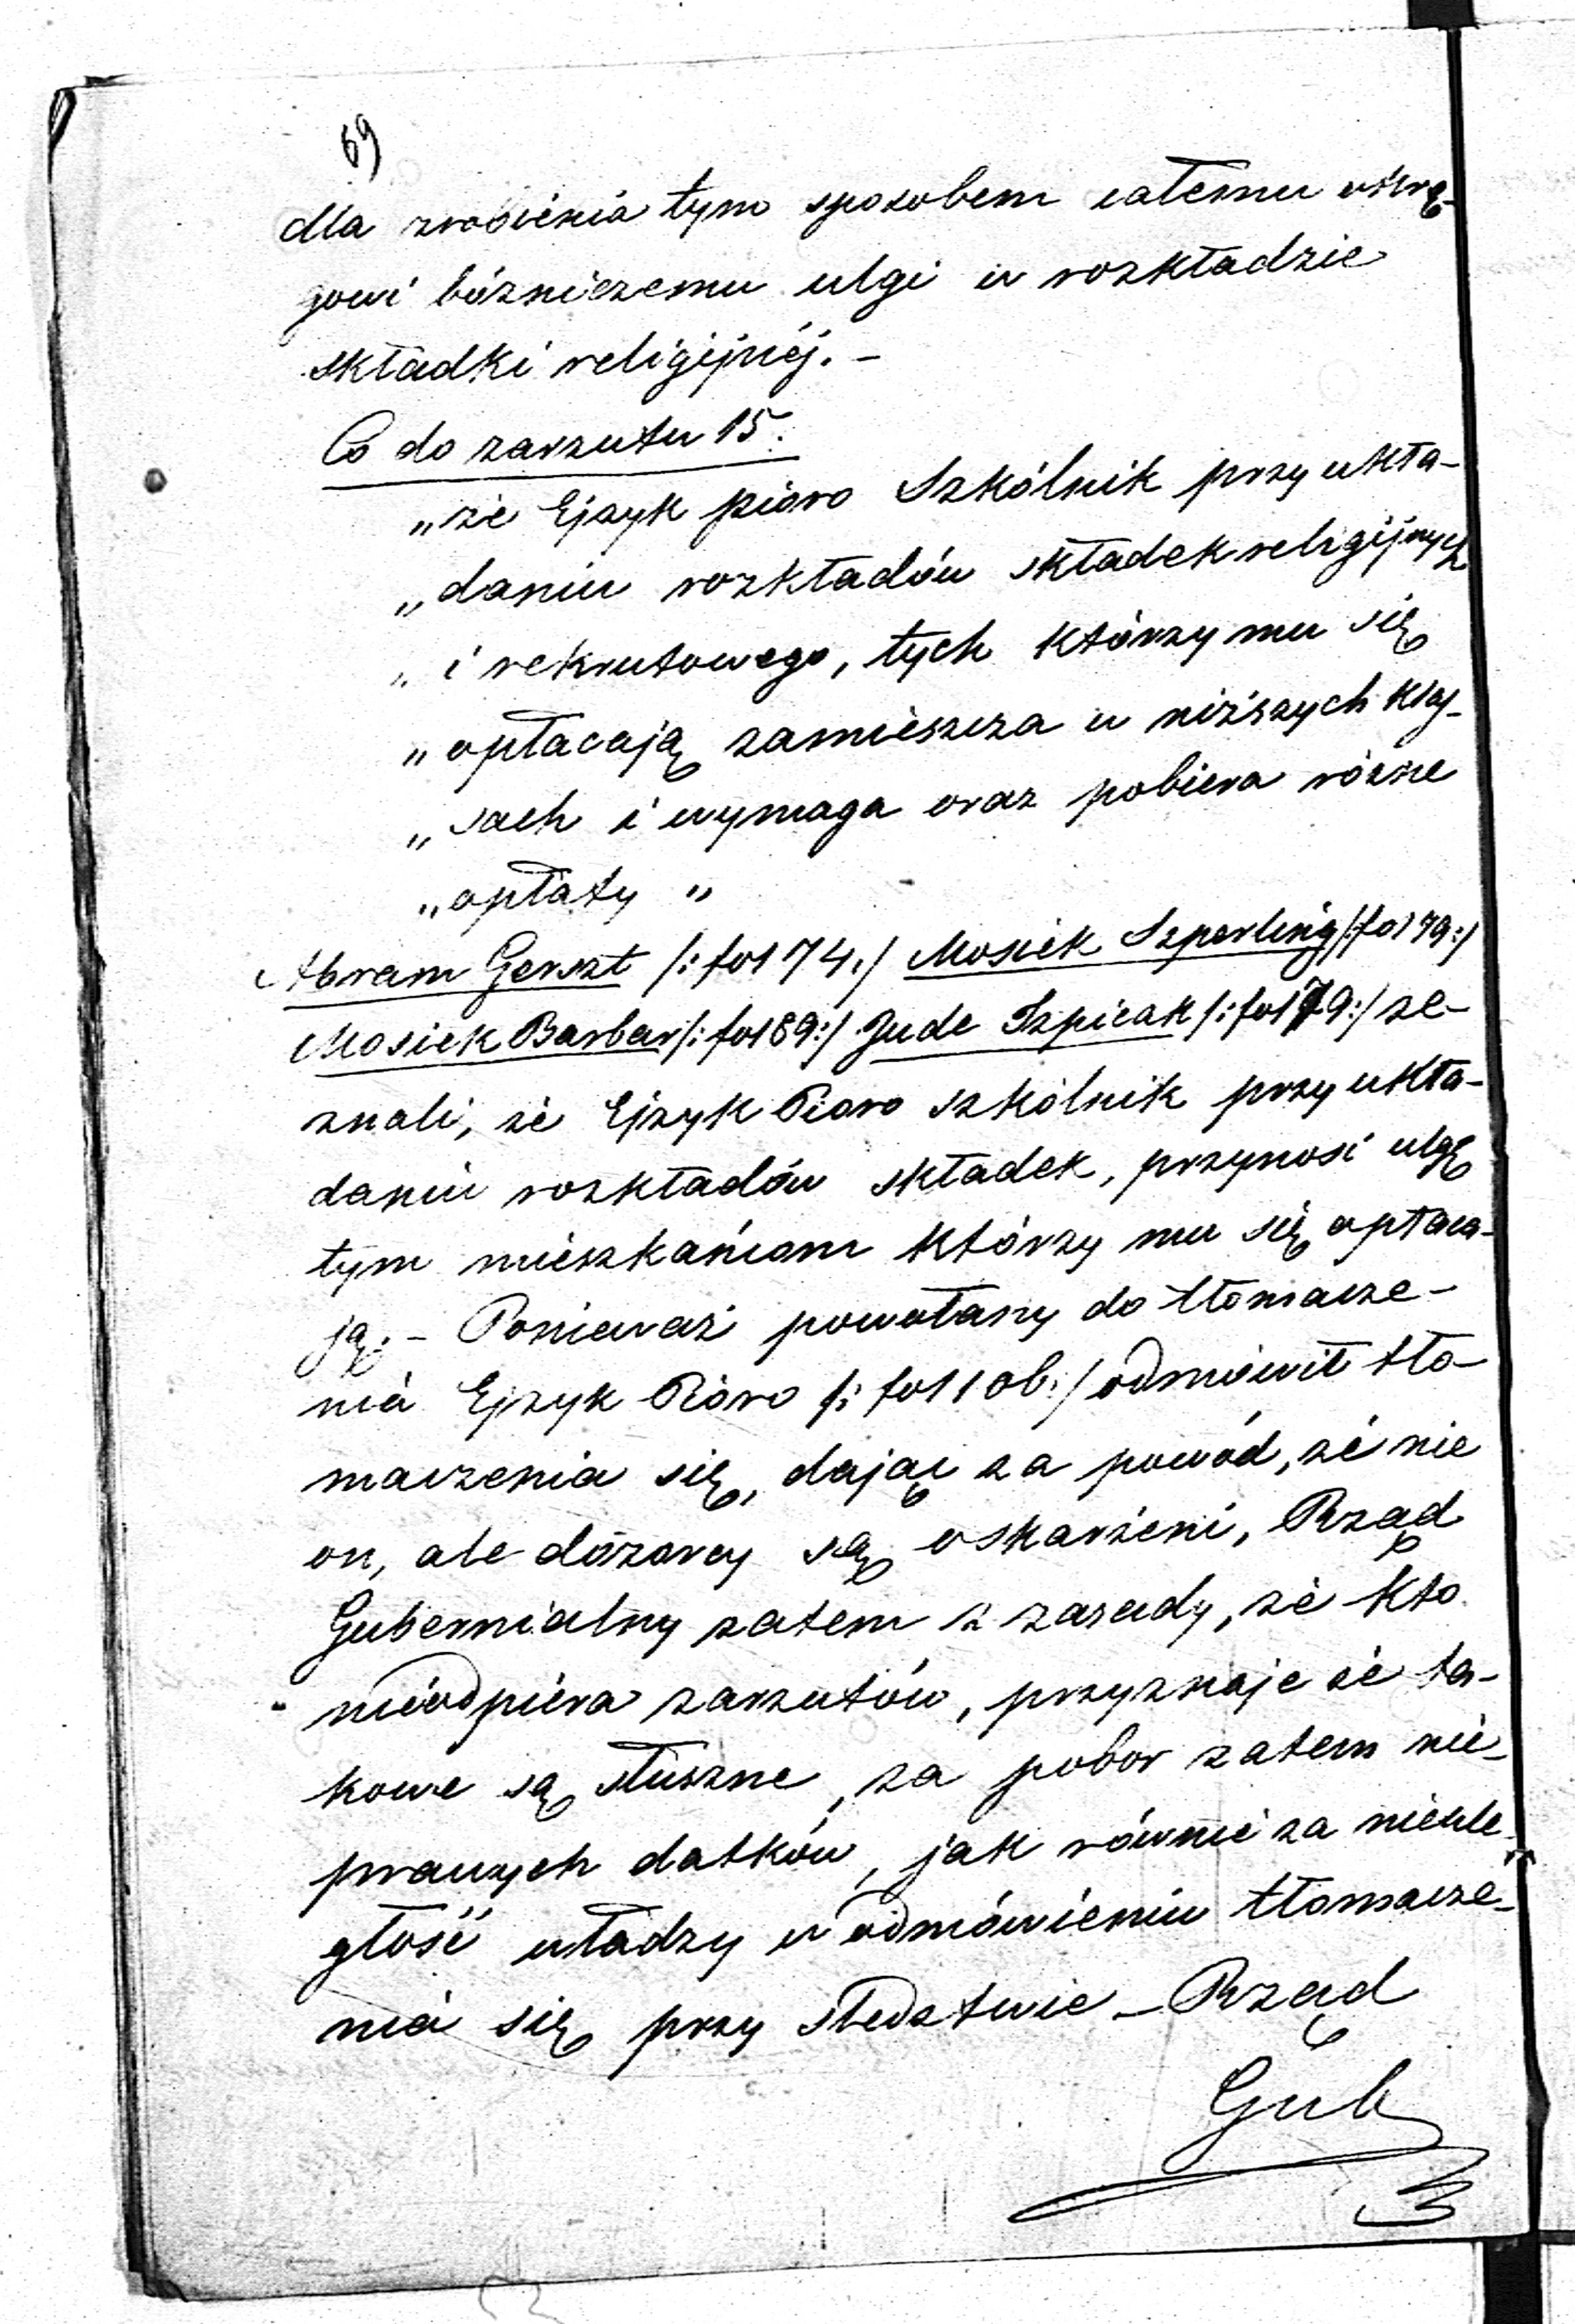 69
dla zrobienia tym sposobem całemu okrę-
gowi bóżniczemu ulgi w rozkładzie
składki religijnéj. -
Co do zarzutu 15.
„że Ejzyk pióro Szkólnik przy ukła-
„daniu rozkładów składek religijnych
„i rekrutowego, tych którzy mu się
„opłacają zamieszcza w niższych klas-
„sach i wymaga oraz pobiera różne
„opłaty"
Abram Gerszt /: fo174./ Mosiek Szperling /:fo179:/
Mosiek Barbar /: fo189:/ Jude Szpicak /: fo179:/ ze-
znali, że Ejzyk Pioro szkólnik przy ukła-
daniu rozkładów składek, przynosi ulgę
tym mieszkańcom którzy mu się opłaca-
ją. - Ponieważ powołany do tłomacze-
nia Ejzyk Pióro /: fo1 10b:/ odmówił tło-
maczenia się, dając za powód, że nie
on, ale dozorcy są oskarżeni, Rząd
Gubernialny zatem z zasady, że kto
nieodpiera zarzutów, przyznaje że ta-
kowe są słuszne, za pobor zatem nie-
prawych datków, jak równie za nieule-
głość władzy w odmówieniu tłomacze-
nia się przy śledztwie - Rząd
Gub